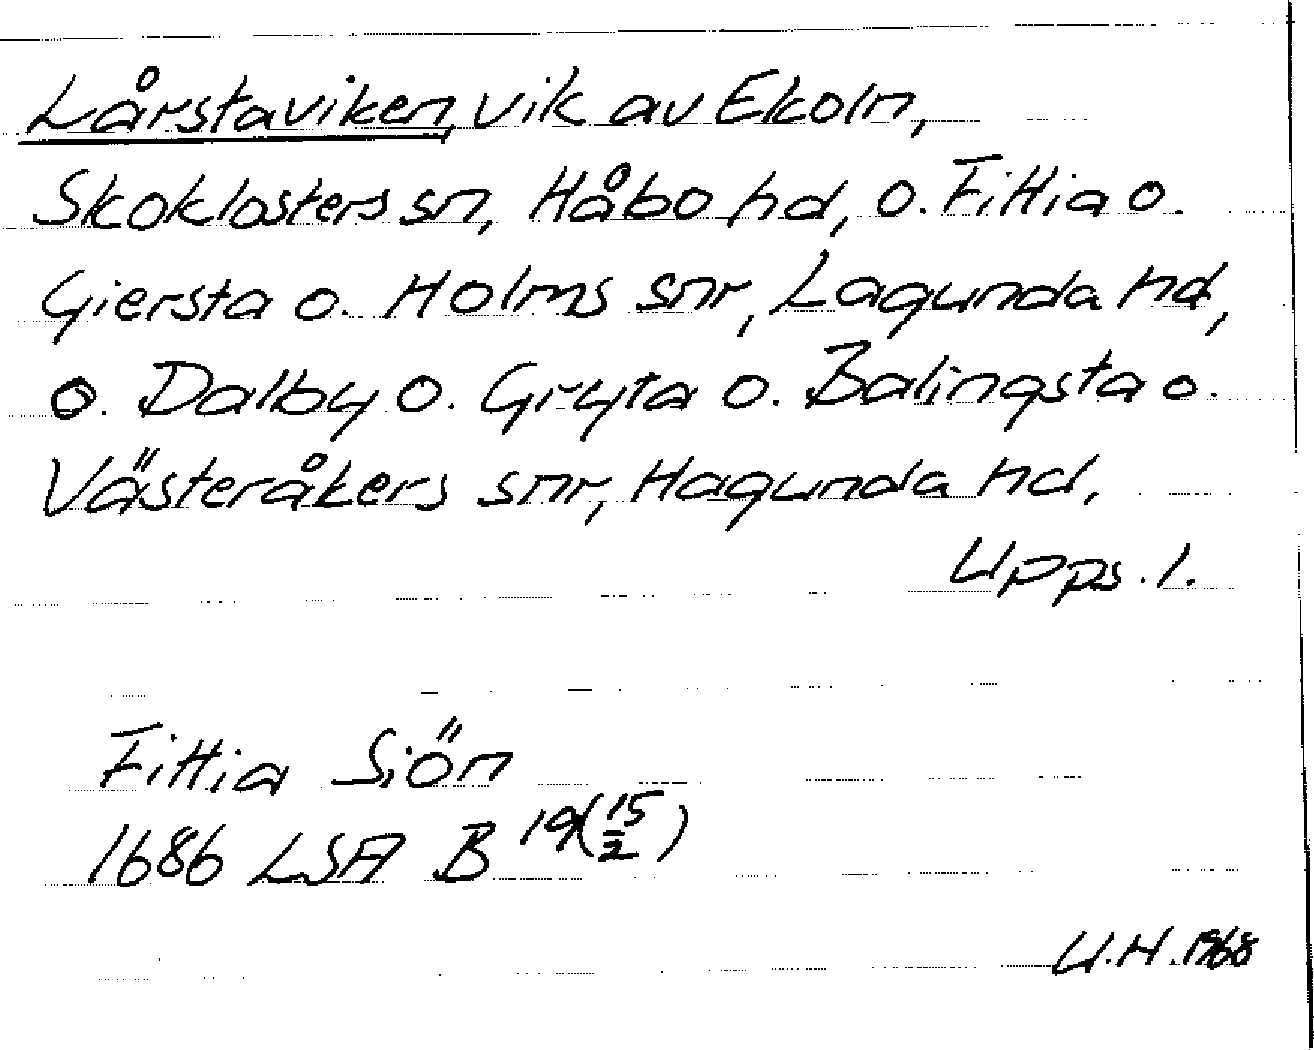 Lårstaviken, vik av Ekoln,
Skoklosters sn, Håbo hd, o. Fittja o.
Giersta o. Holms snr, Lagunda hd,
o. Dalby o. Gryta o. Balingsta o.
Västeråkers snr, Hagunda hd,
Upps. l.
Fittia Siön
1686 LSA B 19(15/2)
U.H. 1968